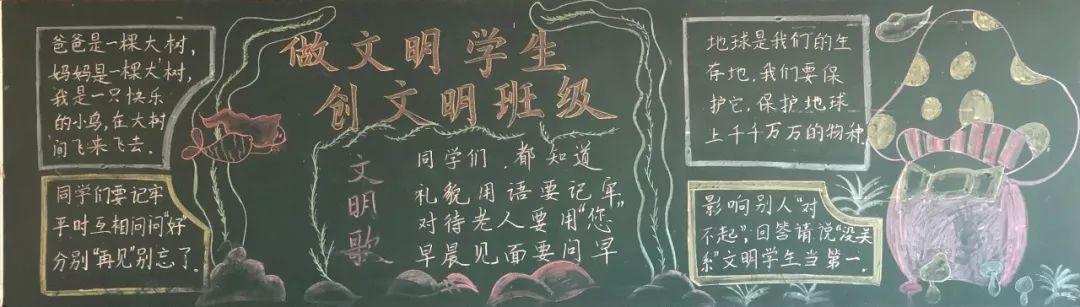 爸爸是一棵大树，
妈妈是一棵大树，
我是一只快乐
的小鸟，在大树
间飞来飞去．
同学们要记牢
平时互相问问"好"
分别"再见"别忘了．
做文明学生
创文明班级
文明歌
同学们，都知道
礼貌用语要记牢
对待老人要用"您"
早晨见面要问早
地球是我们的生
存地．我们要保
护它．保护地球
上千千万万的物种．
影响别人"对
不起"；回答请说"没关
系"文明学生当第一．